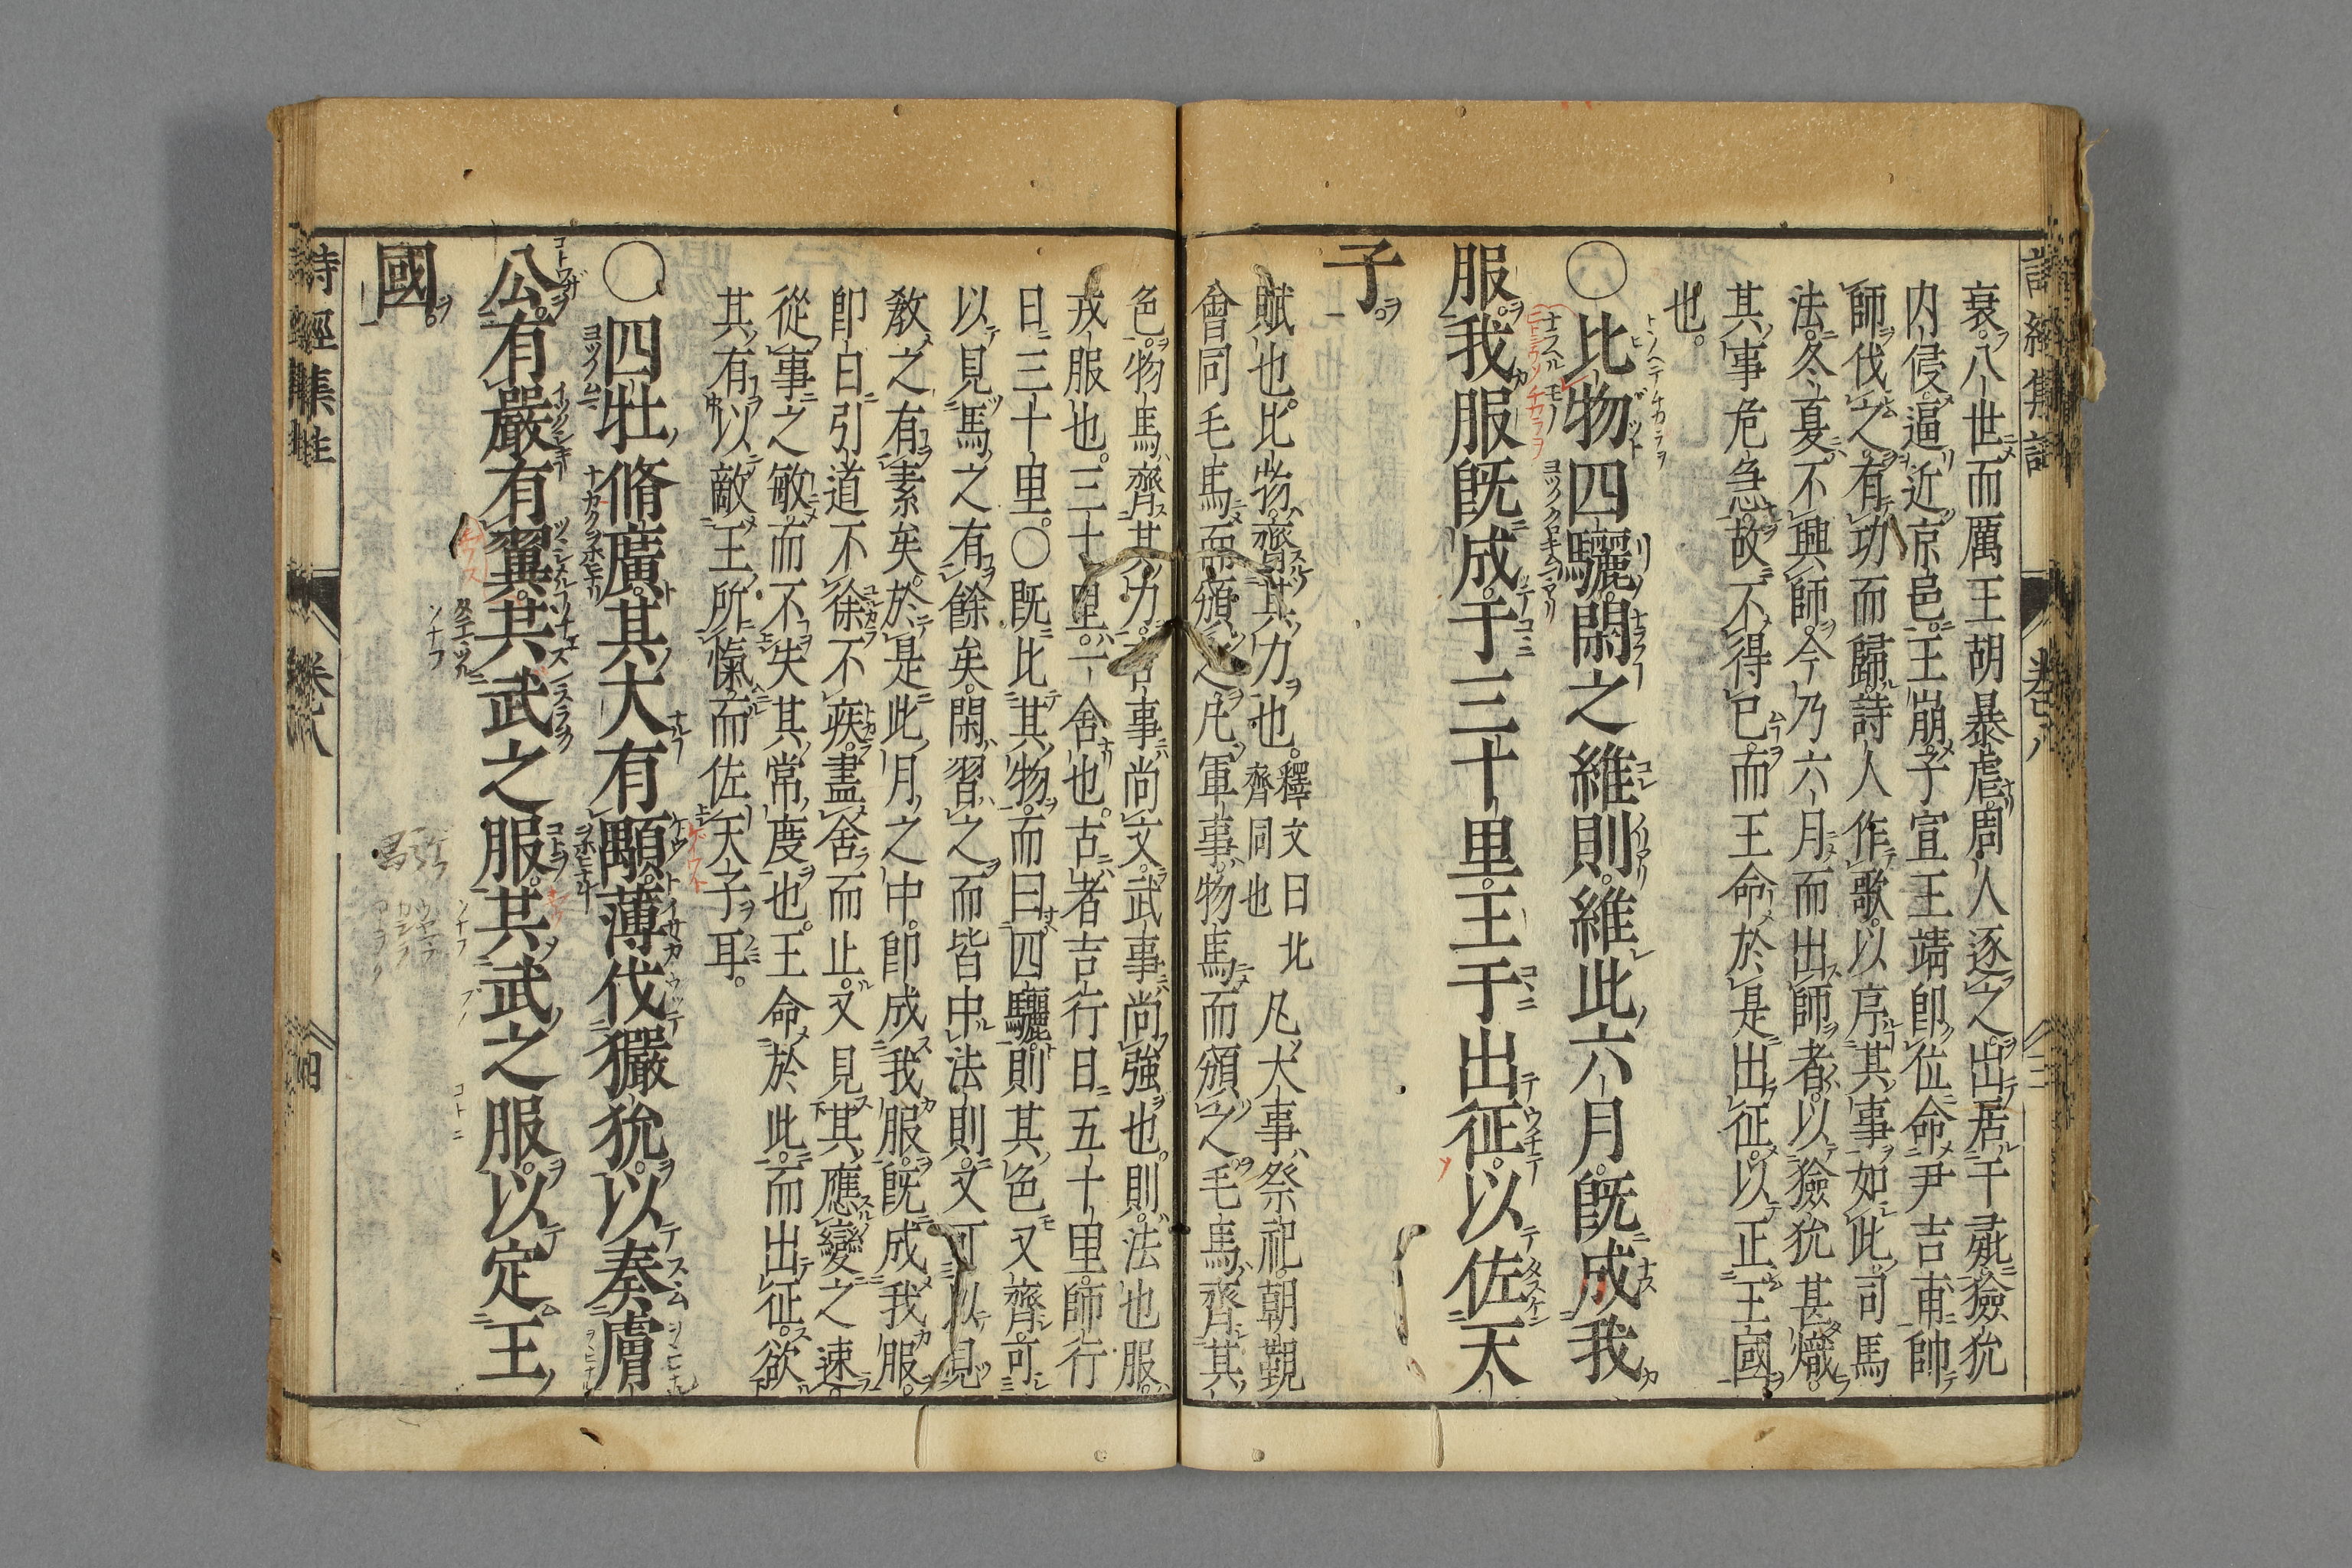 詩經集註 卷八 三
衰八世而厲王胡暴虐周人逐之出居于彘玁狁
内侵逼近京邑王崩子宣王靖卽位命尹吉甫帥
師伐之有功而歸詩人作歌以序其事如此司馬
法冬夏不興師今乃六月而出師者以獫狁甚熾
其事危急故不得已而王命於是出征以正王國
也
○比物四驪閑之維則維此六月既成我
服我服既成于三十里王于出征以佐天
子
賦也比物齊其力也釋文曰北齊同也凡大事祭祀朝覲
會同毛馬而頒之凡軍事物馬而頒之毛馬齊其
色物馬齊其力吉事尚文武事尚強也則法也服
戎服也三十里一舍也古者吉行日五十里師行
日三十里○既比其物而曰四驪則其色又齊可
以見馬之有餘矣閑習之而皆中法則又可以見
教之有素矣於是此月之中卽成我服既成我服
卽日引道不徐不疾盡舍而止又見其應變之速
從事之敏而不失其常度也王命於此而出征欲
其有以敵王所愾而佐天子耳
○四牡脩廣其大有顒薄伐玁狁以奏膚
公有嚴有翼共武之服共武之服以定王
國
詩經集註 卷八 四